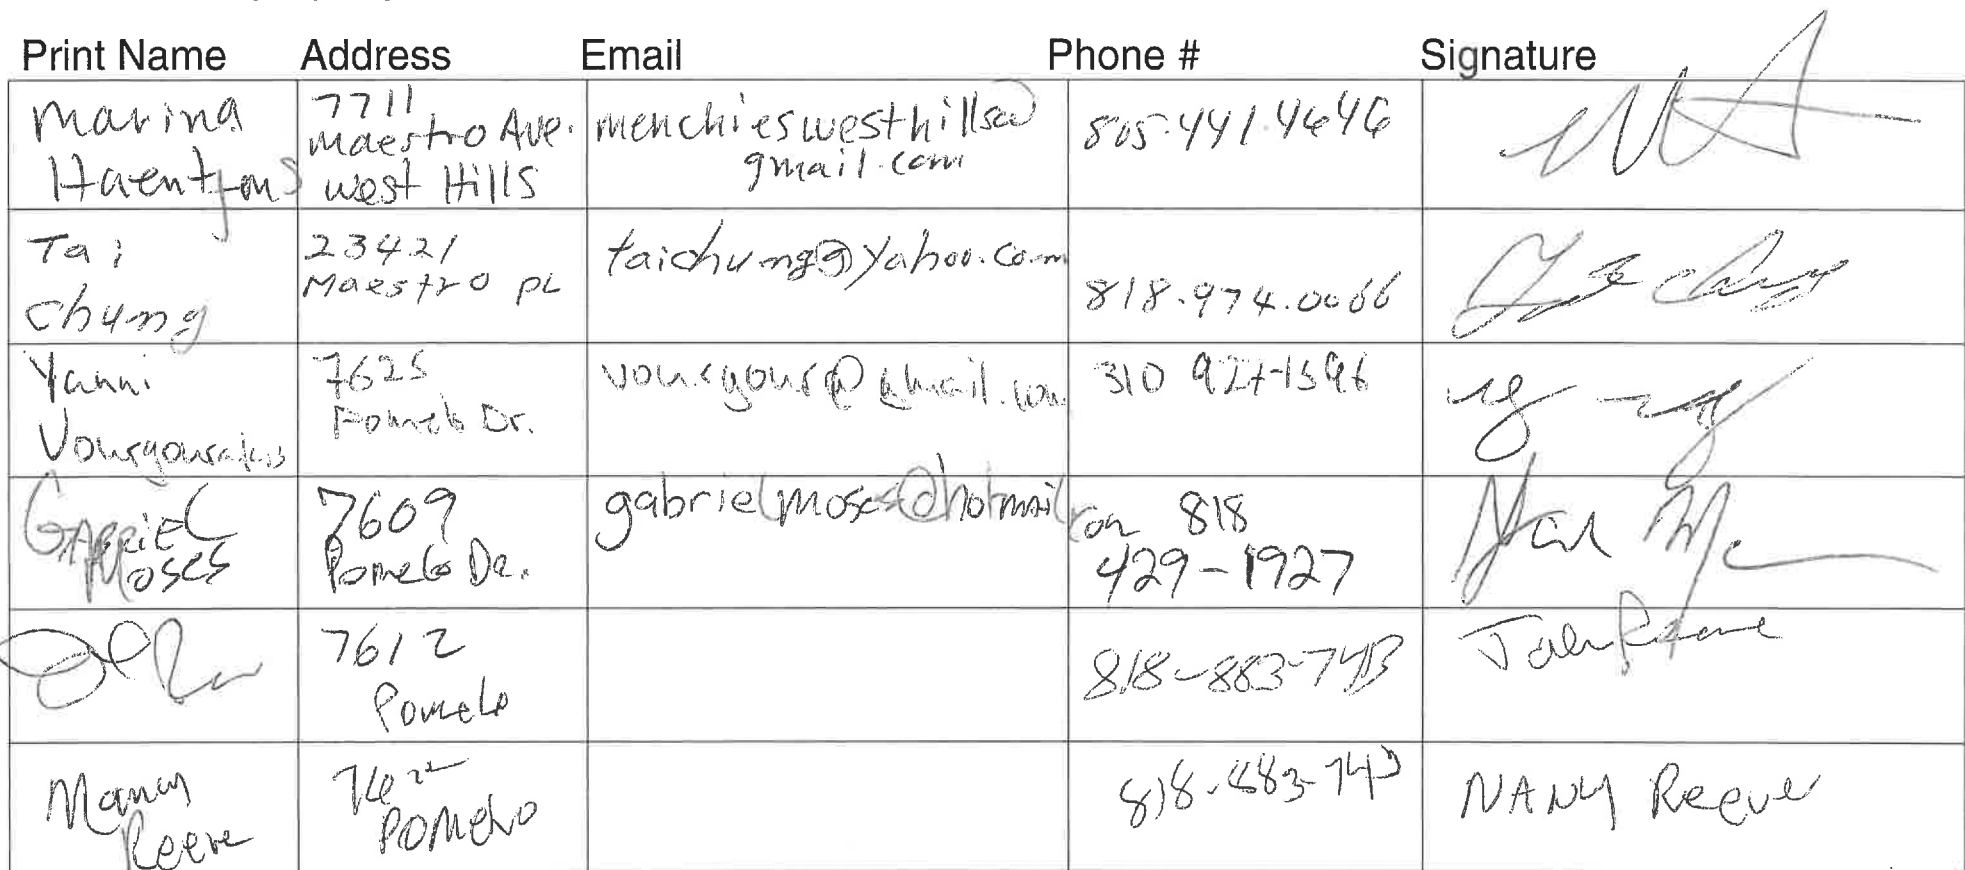 Print Name Address Email Phone # Signature
Marina Haentjens 7711 Maestro Ave. West Hills menchieswesthills@gmail.com 805-441-4646
Tai Chung 23421 Maestro PL taichung@yahoo.com 818.974.0066
Yanni 7625 Pomelo Dr. 310
GABRIEL MOSES 7609 Pomelo Dr. gabrielmoses@hotmail.com 818 429-1927
7612 Pomelo 818-883- John Reeve
Reeve Pomelo 818-883- Reeve